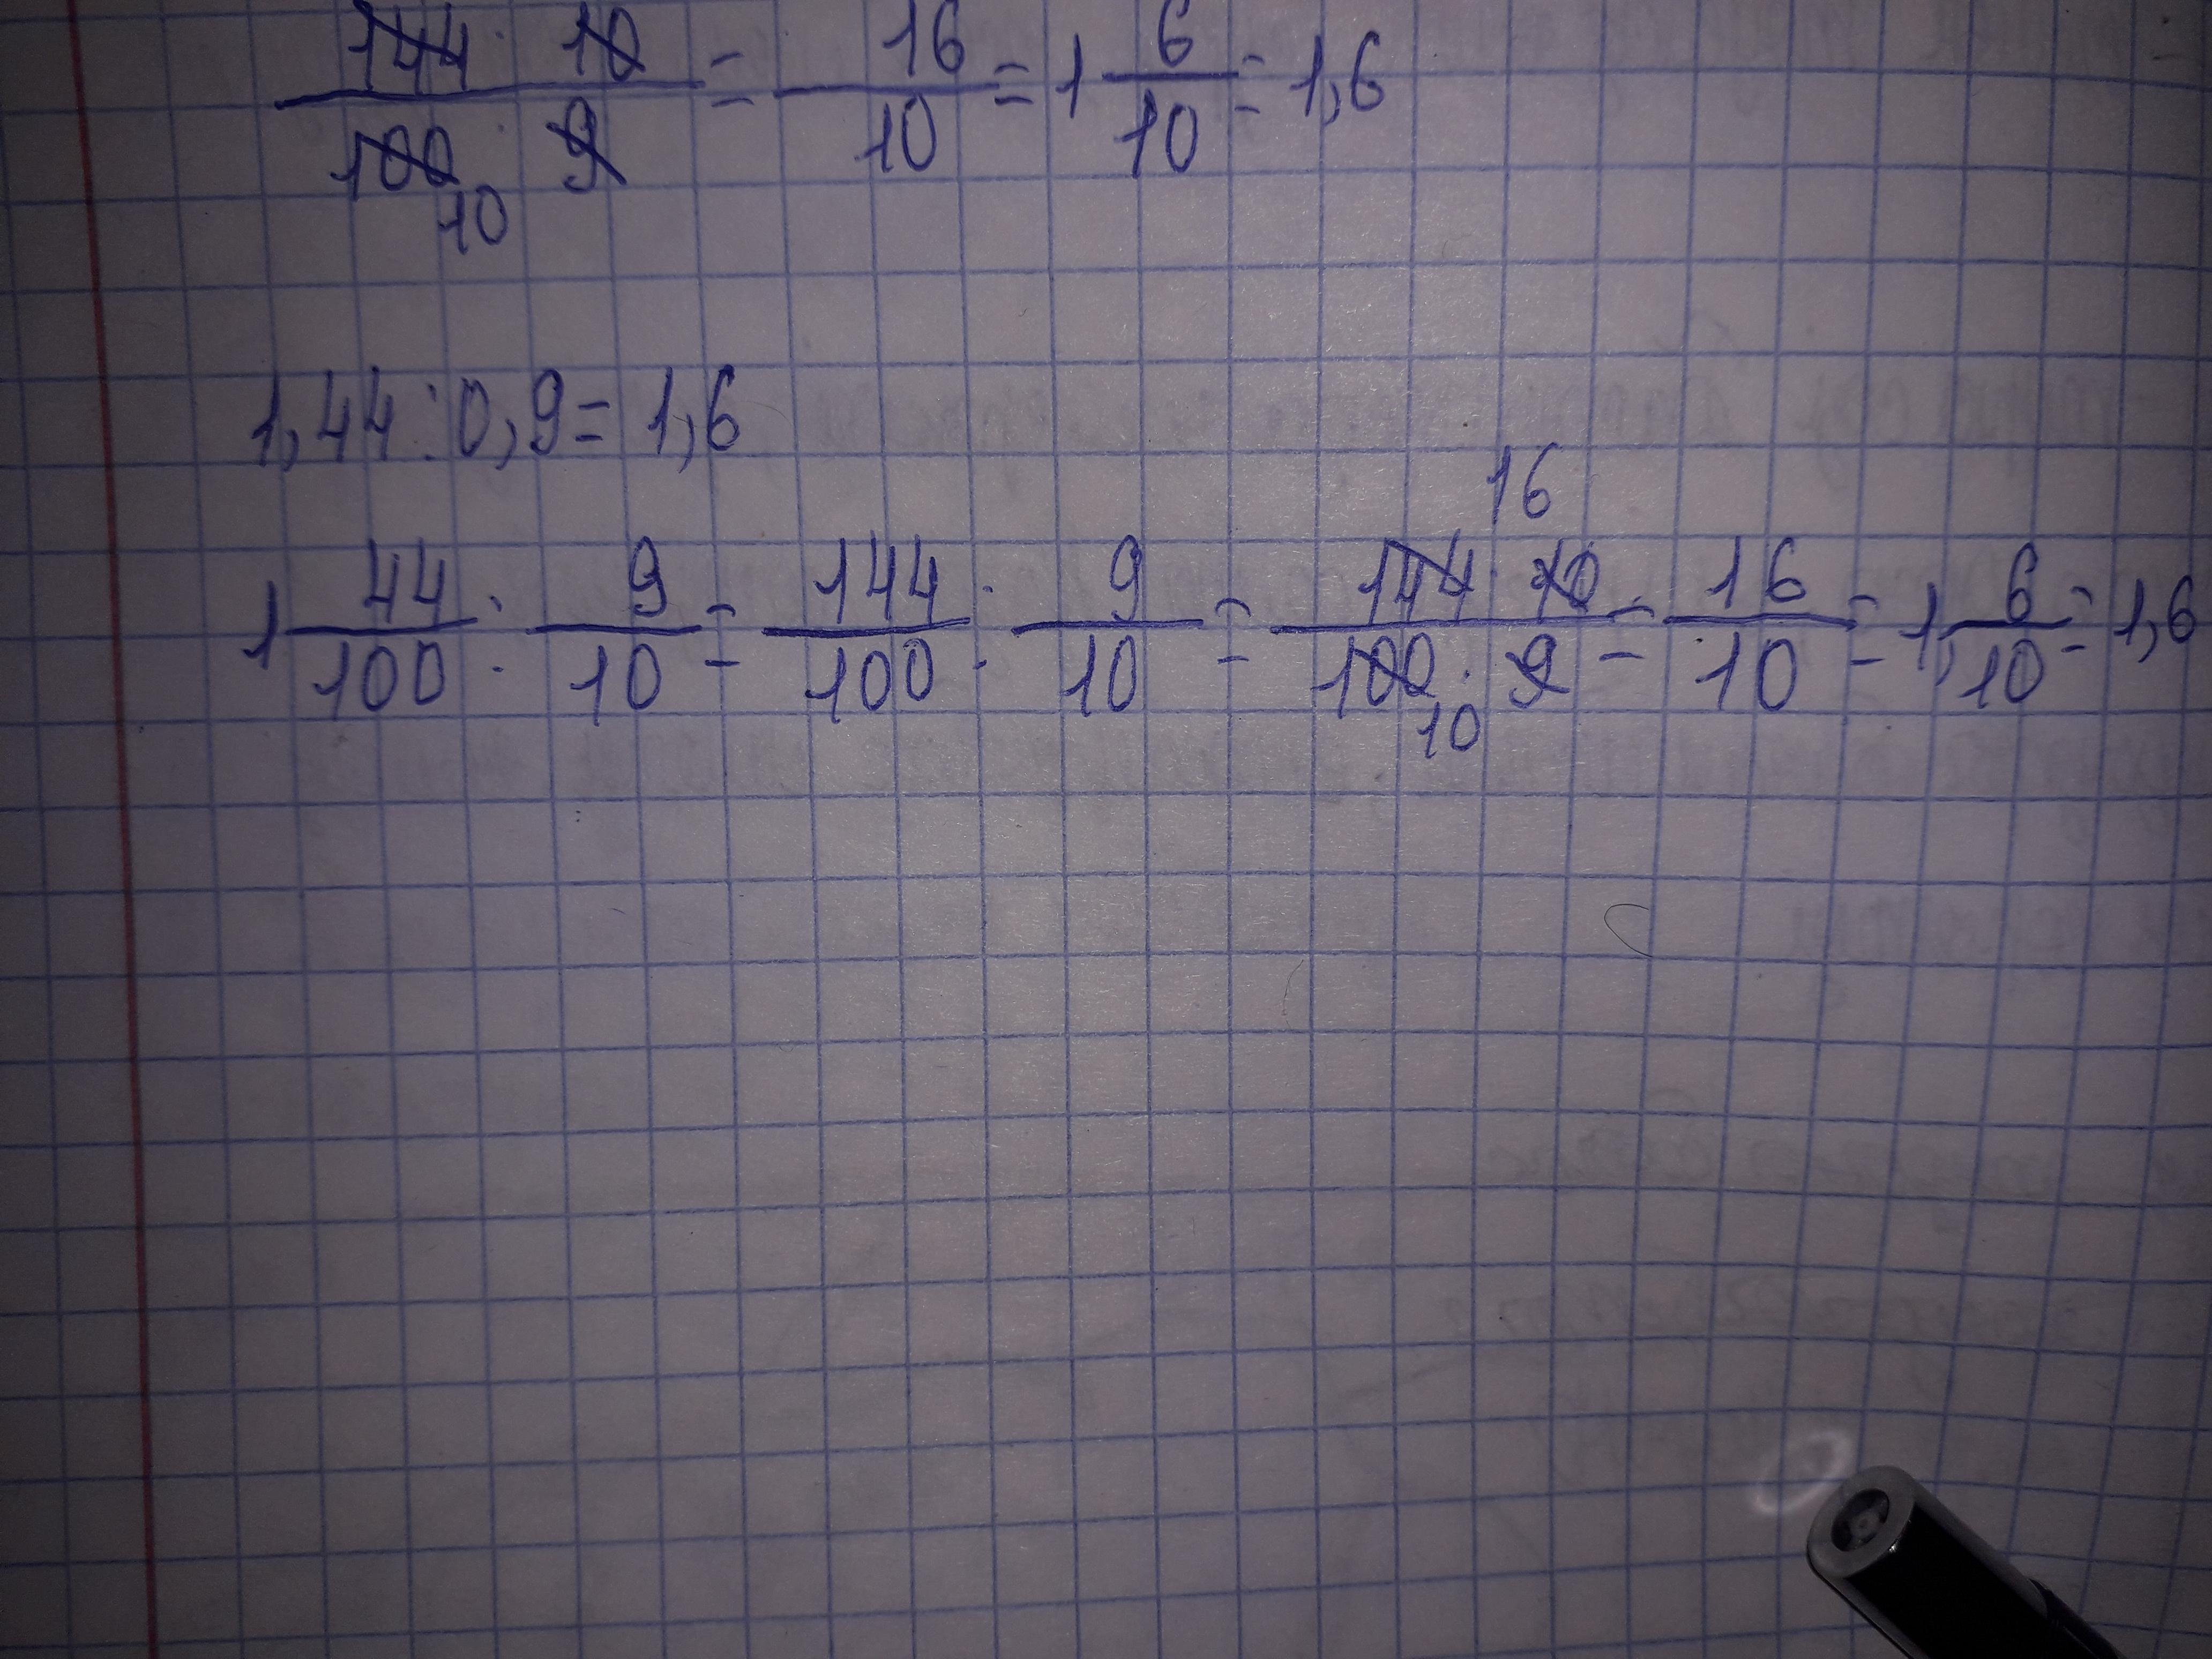 144 · 10 / 100 · 9 = 16/10 = 1 6/10 = 1,6
10
1,44 : 0,9 = 1,6
16
1 44/100 : 9/10 = 144/100 : 9/10 = 144 · 10 / 100 · 9 = 16/10 = 1, 6/10 = 1,6
10